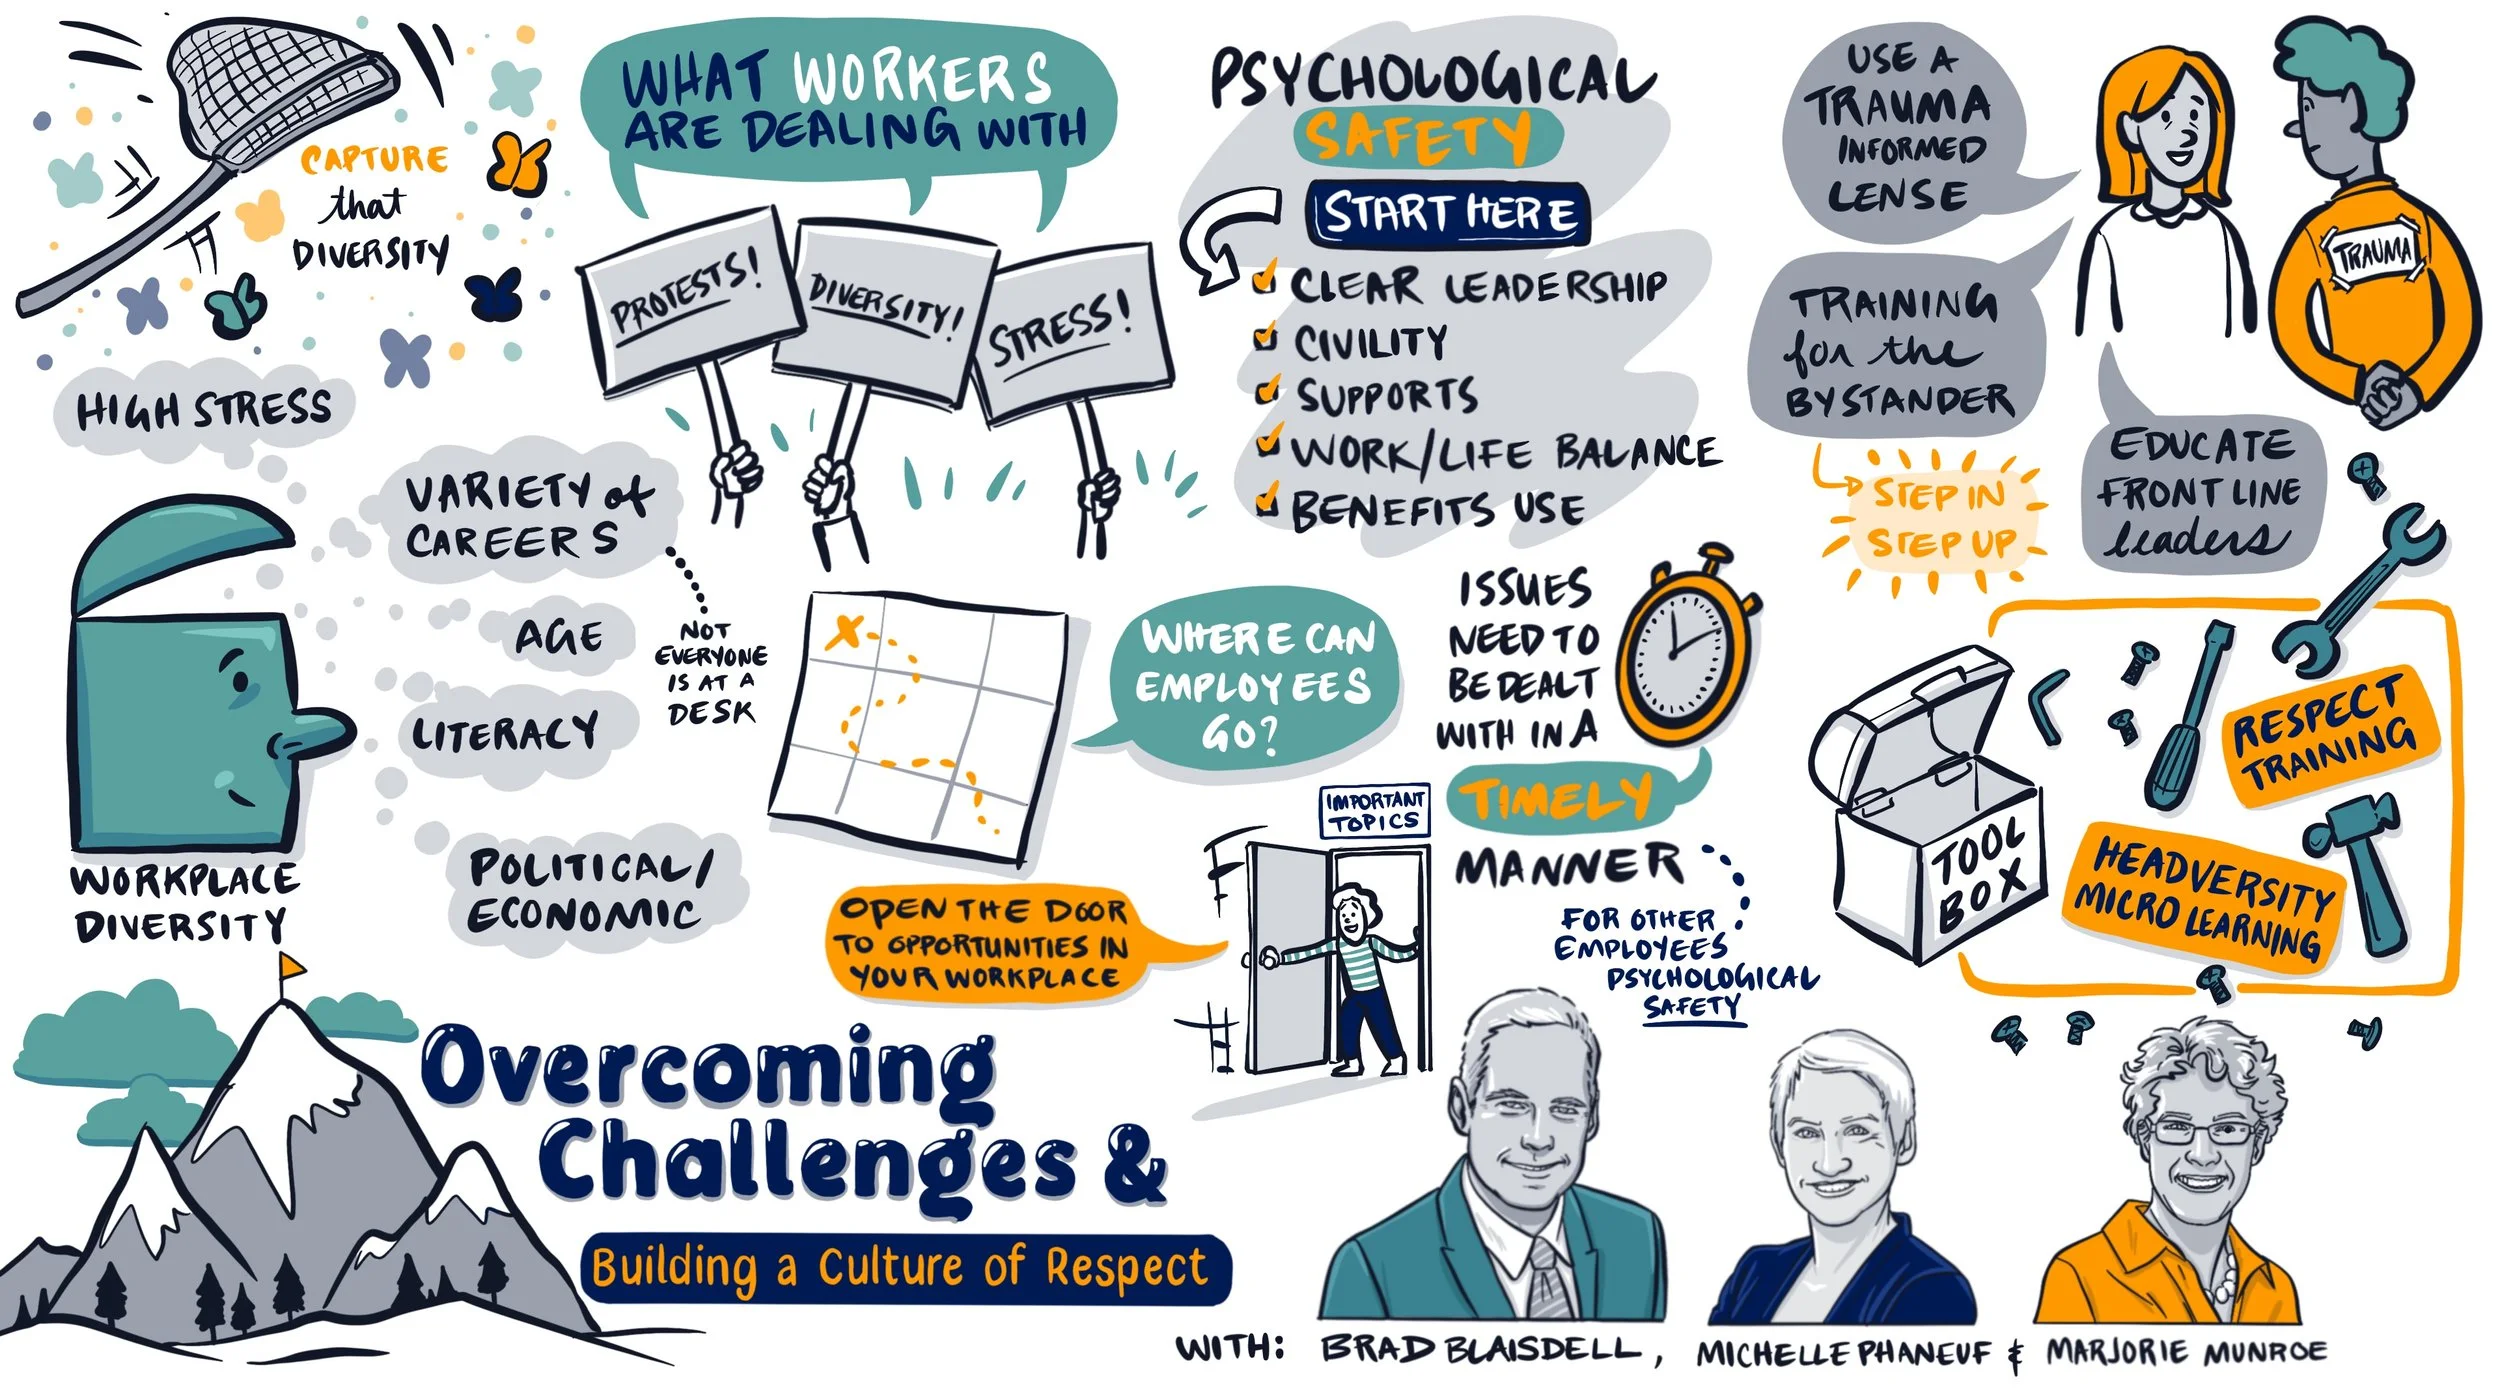 CAPTURE
that
DIVERSITY
HIGH STRESS
VARIETY of
CAREERS
NOT
EVERYONE
IS AT A
DESK
AGE
LITERACY
POLITICAL/
ECONOMIC
WORKPLACE
DIVERSITY
WHAT WORKERS
ARE DEALING WITH
PROTESTS!
DIVERSITY!
STRESS!
WHERE CAN
EMPLOYEES
GO?
OPEN THE DOOR
TO OPPORTUNITIES IN
YOUR WORKPLACE
IMPORTANT
TOPICS
PSYCHOLOGICAL
SAFETY
START HERE
CLEAR LEADERSHIP
CIVILITY
SUPPORTS
WORK/LIFE BALANCE
BENEFITS USE
ISSUES
NEED TO
BE DEALT
WITH IN A
TIMELY
MANNER
FOR OTHER
EMPLOYEES
PSYCHOLOGICAL
SAFETY
USE A
TRAUMA
INFORMED
LENSE
TRAUMA
TRAINING
for the
BYSTANDER
STEP IN
STEP UP
EDUCATE
FRONT LINE
leaders
TOOL
BOX
RESPECT
TRAINING
HEADVERSITY
MICRO LEARNING
Overcoming
Challenges &
Building a Culture of Respect
WITH: BRAD BLAISDELL, MICHELLE PHANEUF & MARJORIE MUNROE